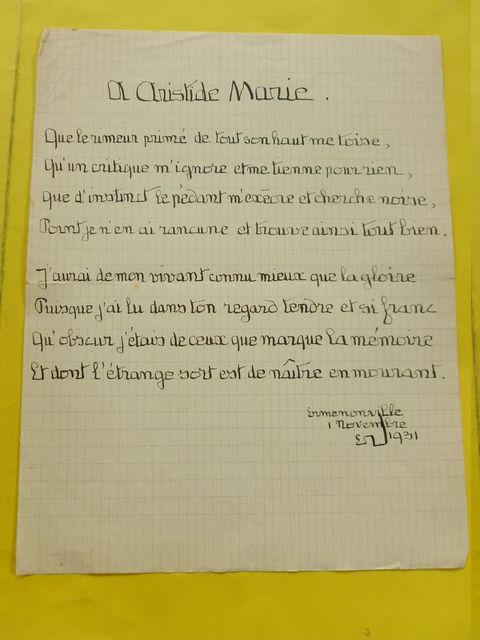 A Aristide Marie.
Que le rimeur primé de tout son haut me toise,
Qu'un critique m'ignore et me tienne pour rien,
Que d'instinct le pédant m'exècre et cherche noise,
Point je n'en ai rancune et trouve ainsi tout bien.
J'aurai de mon vivant connu mieux que la gloire
Puisque j'ai lu dans ton regard tendre et si franc
Qu'obscur j'étais de ceux que marque la mémoire
Et dont l'étrange sort est de naître en mourant.
Ermenonville
1 Novembre
1931